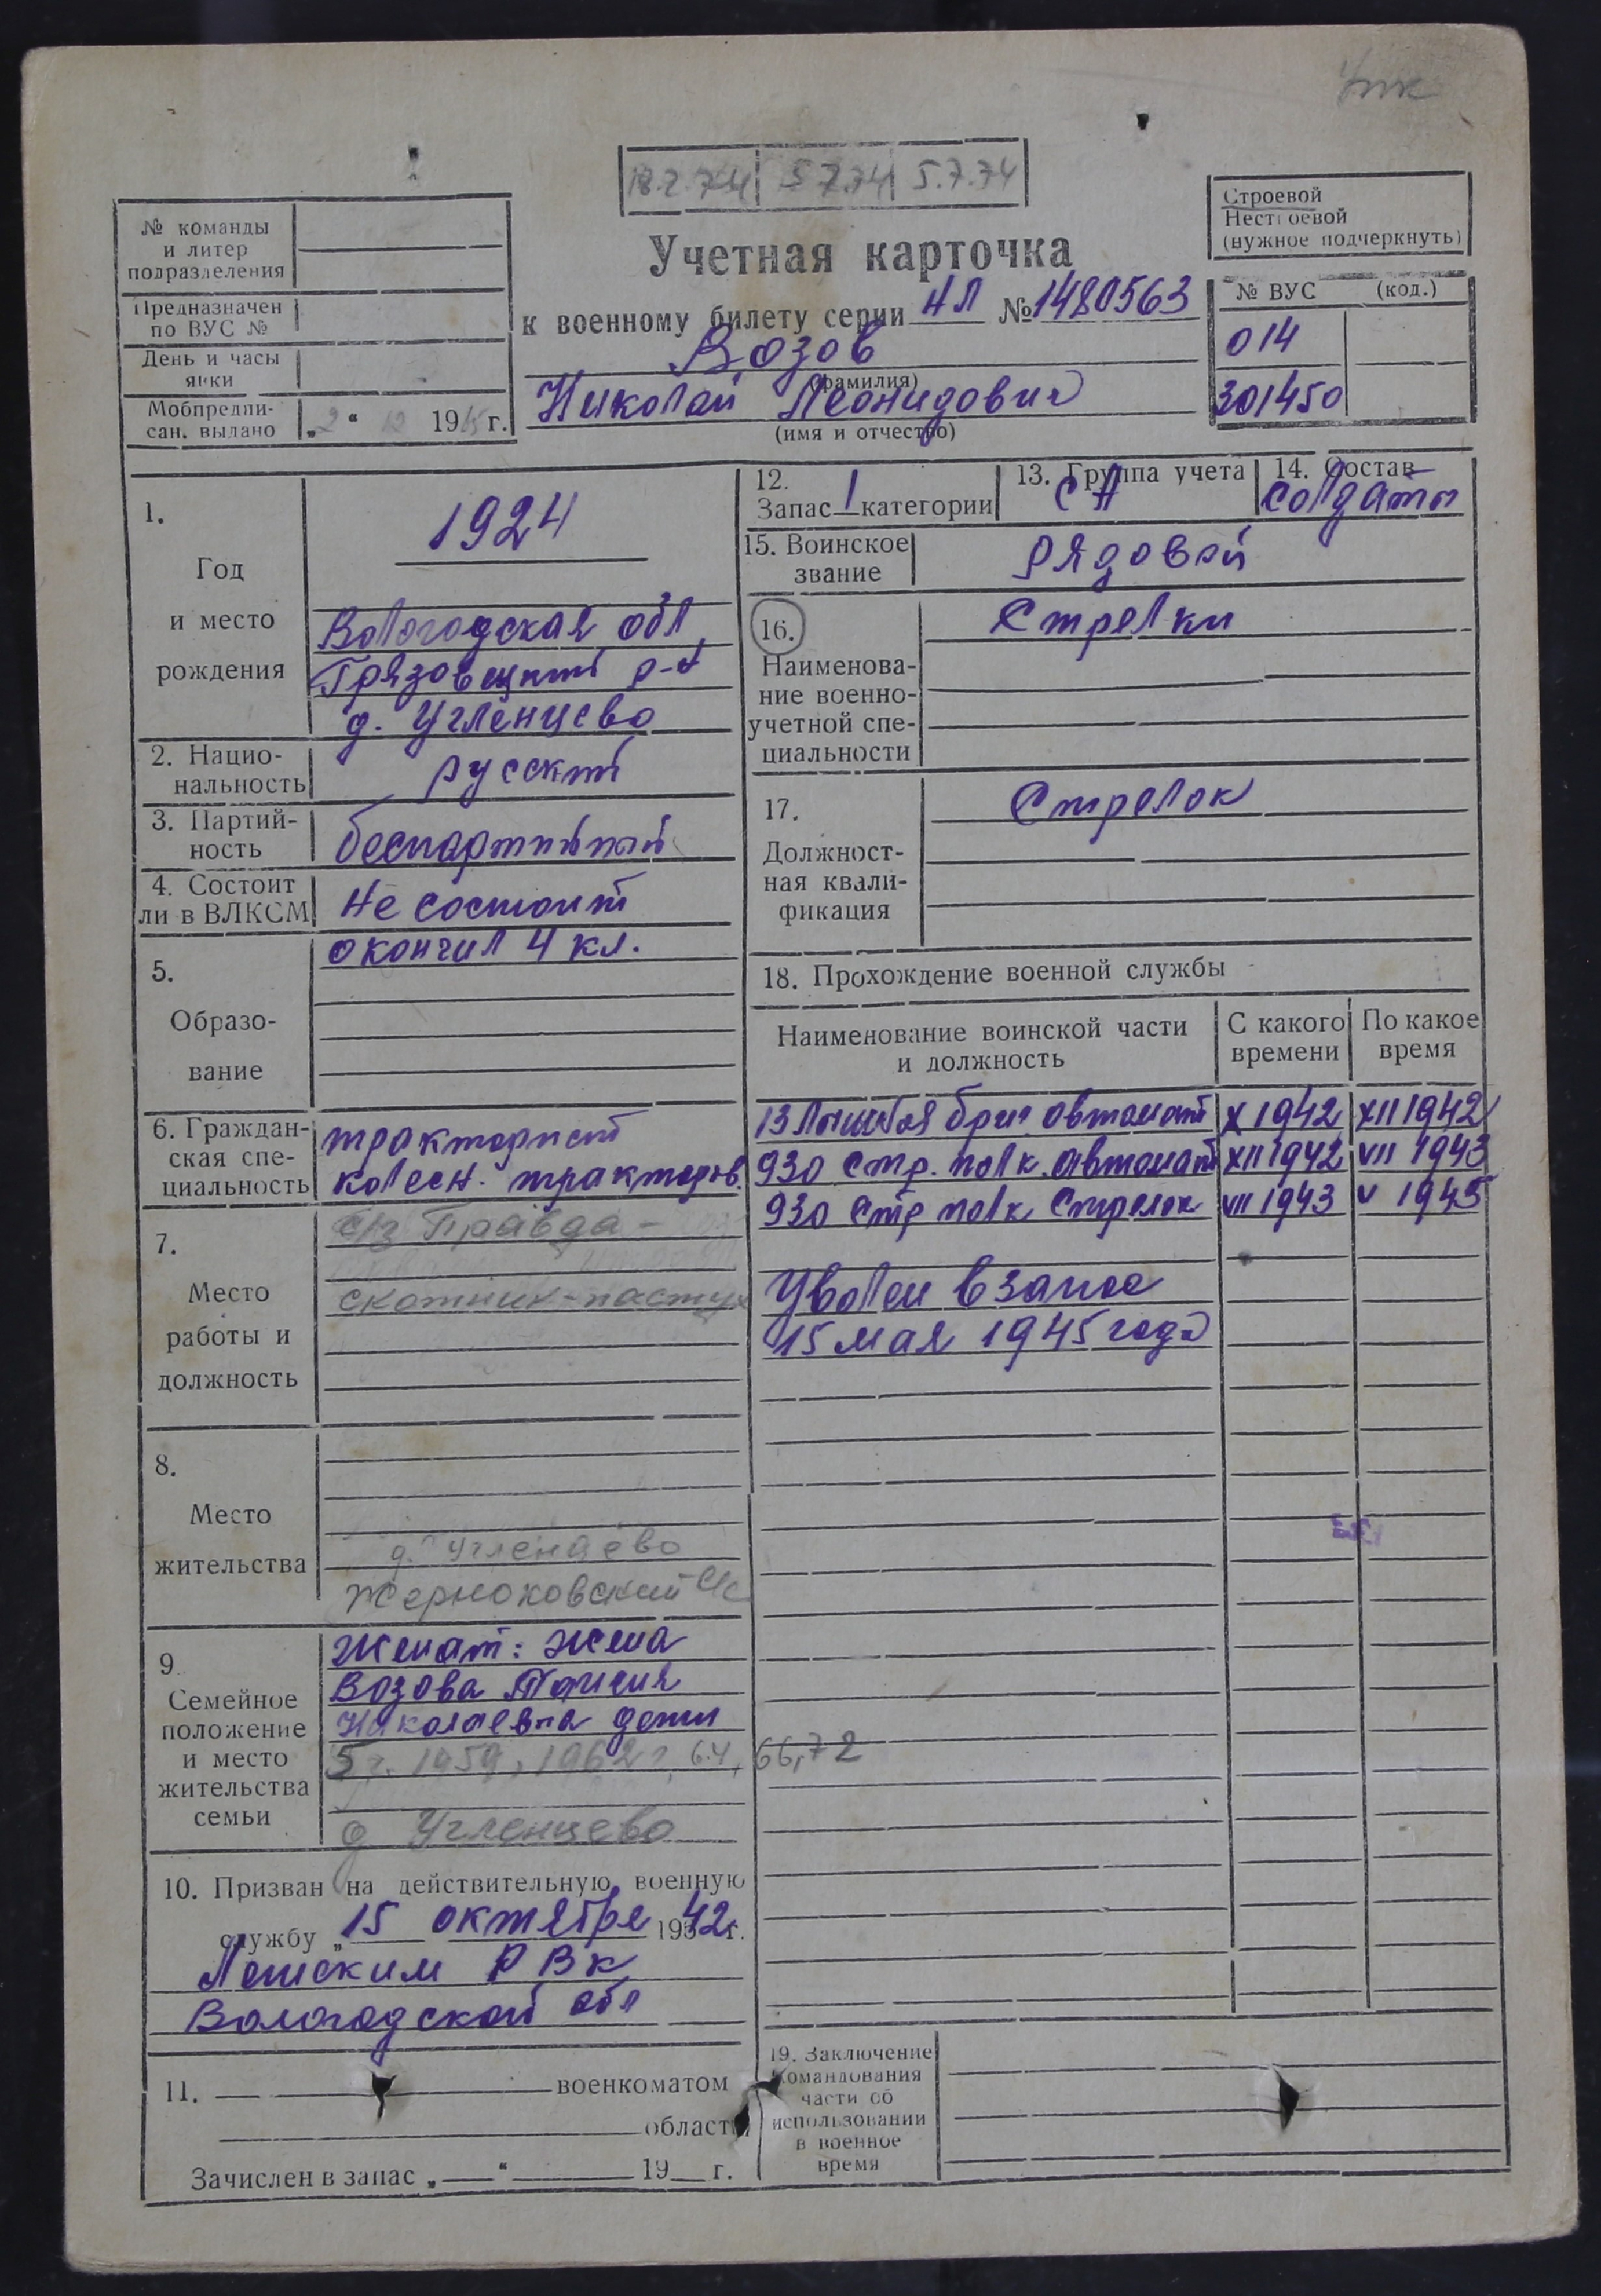 18.2.74 5 7.74 5.7.74
№ команды
и литер
подразделения
Предназначен
по ВУС №
День и часы
явки
Мобпредпи-
сан. выдано „2“ 12 1965 г.
Учетная карточка
к военному билету серии НЛ № 1480563
Возов
(фамилия)
Николай Леонидович
(имя и отчество)
Строевой
Нестроевой
(нужное подчеркнуть)
№ ВУС (код.)
014
301450
1.
Год
и место
рождения
1924
Вологодская обл,
Грязовецкий р-н
д. Угленцево
2. Нацио-
нальность
русский
3. Партий-
ность
беспартийный
4. Состоит
ли в ВЛКСМ
не состоит
5.
Образо-
вание
окончил 4 кл.
6. Граждан-
ская спе-
циальность
тракторист
колесн. тракторов.
7.
Место
работы и
должность
с/з Правда -
скотник-пастух
8.
Место
жительства
д. Угленцево
Жерноковский с/с
9.
Семейное
положение
и место
жительства
семьи
Женат: жена
Возова Таисия
Николаевна дети
5 ч. 1959, 1962 г, 64, 66, 72
д Угленцево
10. Призван на действительную военную
службу „15 октября 1942 г.
РВК
Вологодской обл
11. военкоматом
области
Зачислен в запас „ “ 19 г.
12.
Запас 1 категории
13. Группа учета
СА
14. Состав
солдаты
15. Воинское
звание
рядовой
16.
Наименова-
ние военно-
учетной спе-
циальности
Стрелки
17.
Должност-
ная квали-
фикация
Стрелок
18. Прохождение военной службы
Наименование воинской части
и должность
С какого
времени
По какое
время
13 Лыжная бриг автомат X 1942 XII 1942
930 стр. полк. автомат XII 1942 VII 1943
930 стр полк Стрелок VII 1943 V 1945
Уволен в запас
15 мая 1945 года
19. Заключение
командования
части об
использовании
в военное
время